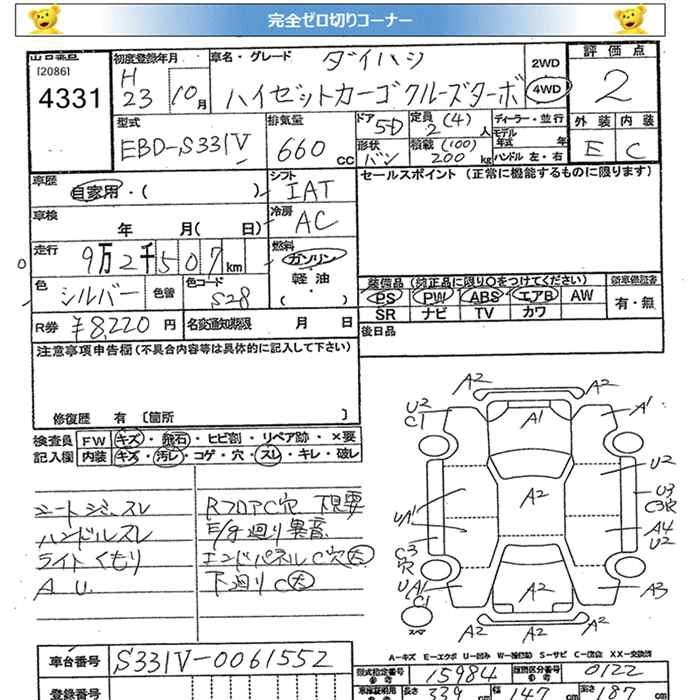 完全ゼロ切りコーナー
[2086]
4331
初度登録年月
H 23 10月
車名・グレード
ダイハツ
ハイゼットカーゴクルーズターボ
2WD
4WD
評価点
2
外装 内装
E C
型式
EBD-S331V
排気量
660 cc
ドア 5D
形状 バン
定員 2(4)人
積載 (100) 200 kg
ディーラー・並行
モデル年式 年
ハンドル 左・右
車歴
自家用・( )
シフト
IAT
セールスポイント (正常に機能するものに限ります)
車検
年 月( 日)
冷房
AC
走行
9万2千507km
燃料
ガソリン
軽油・
( )
色
シルバー
色替
色コード
S28
装備品 (純正品に限り○をつけてください)
PS PW ABS エアB AW
SR ナビ TV カワ
有・無
R券 ¥8,220円
名変通知期限 月 日
後日品
注意事項申告欄(不具合内容等は具体的に記入して下さい)
修復歴 有 〔箇所 〕
検査員記入欄
FW キズ・飛石・ヒビ割・リペア跡・×要
内装 キズ・汚レ・コゲ・穴・スレ・キレ・破レ
ハンドルスレ
ライトくもり
A U.
RフロアC穴 下見要
E/g廻り異音
エンドパネルC穴大
下廻りC大
A2 A2
U2 C1 A1 A1
A2 U2
UA1 A2 U3 C3穴
C3穴 A4 U2
UA1 C1 A2 A3
スペア
A2 A2
A-キズ E-エクボ U-凹ミ W-補修跡 S-サビ C-腐食 XX-交換済
車台番号
S331V-0061552
型式指定番号 参考 15984
類別区分番号 参考 0122
登録番号
長さ 339 cm 幅 147 cm 高さ 187 cm